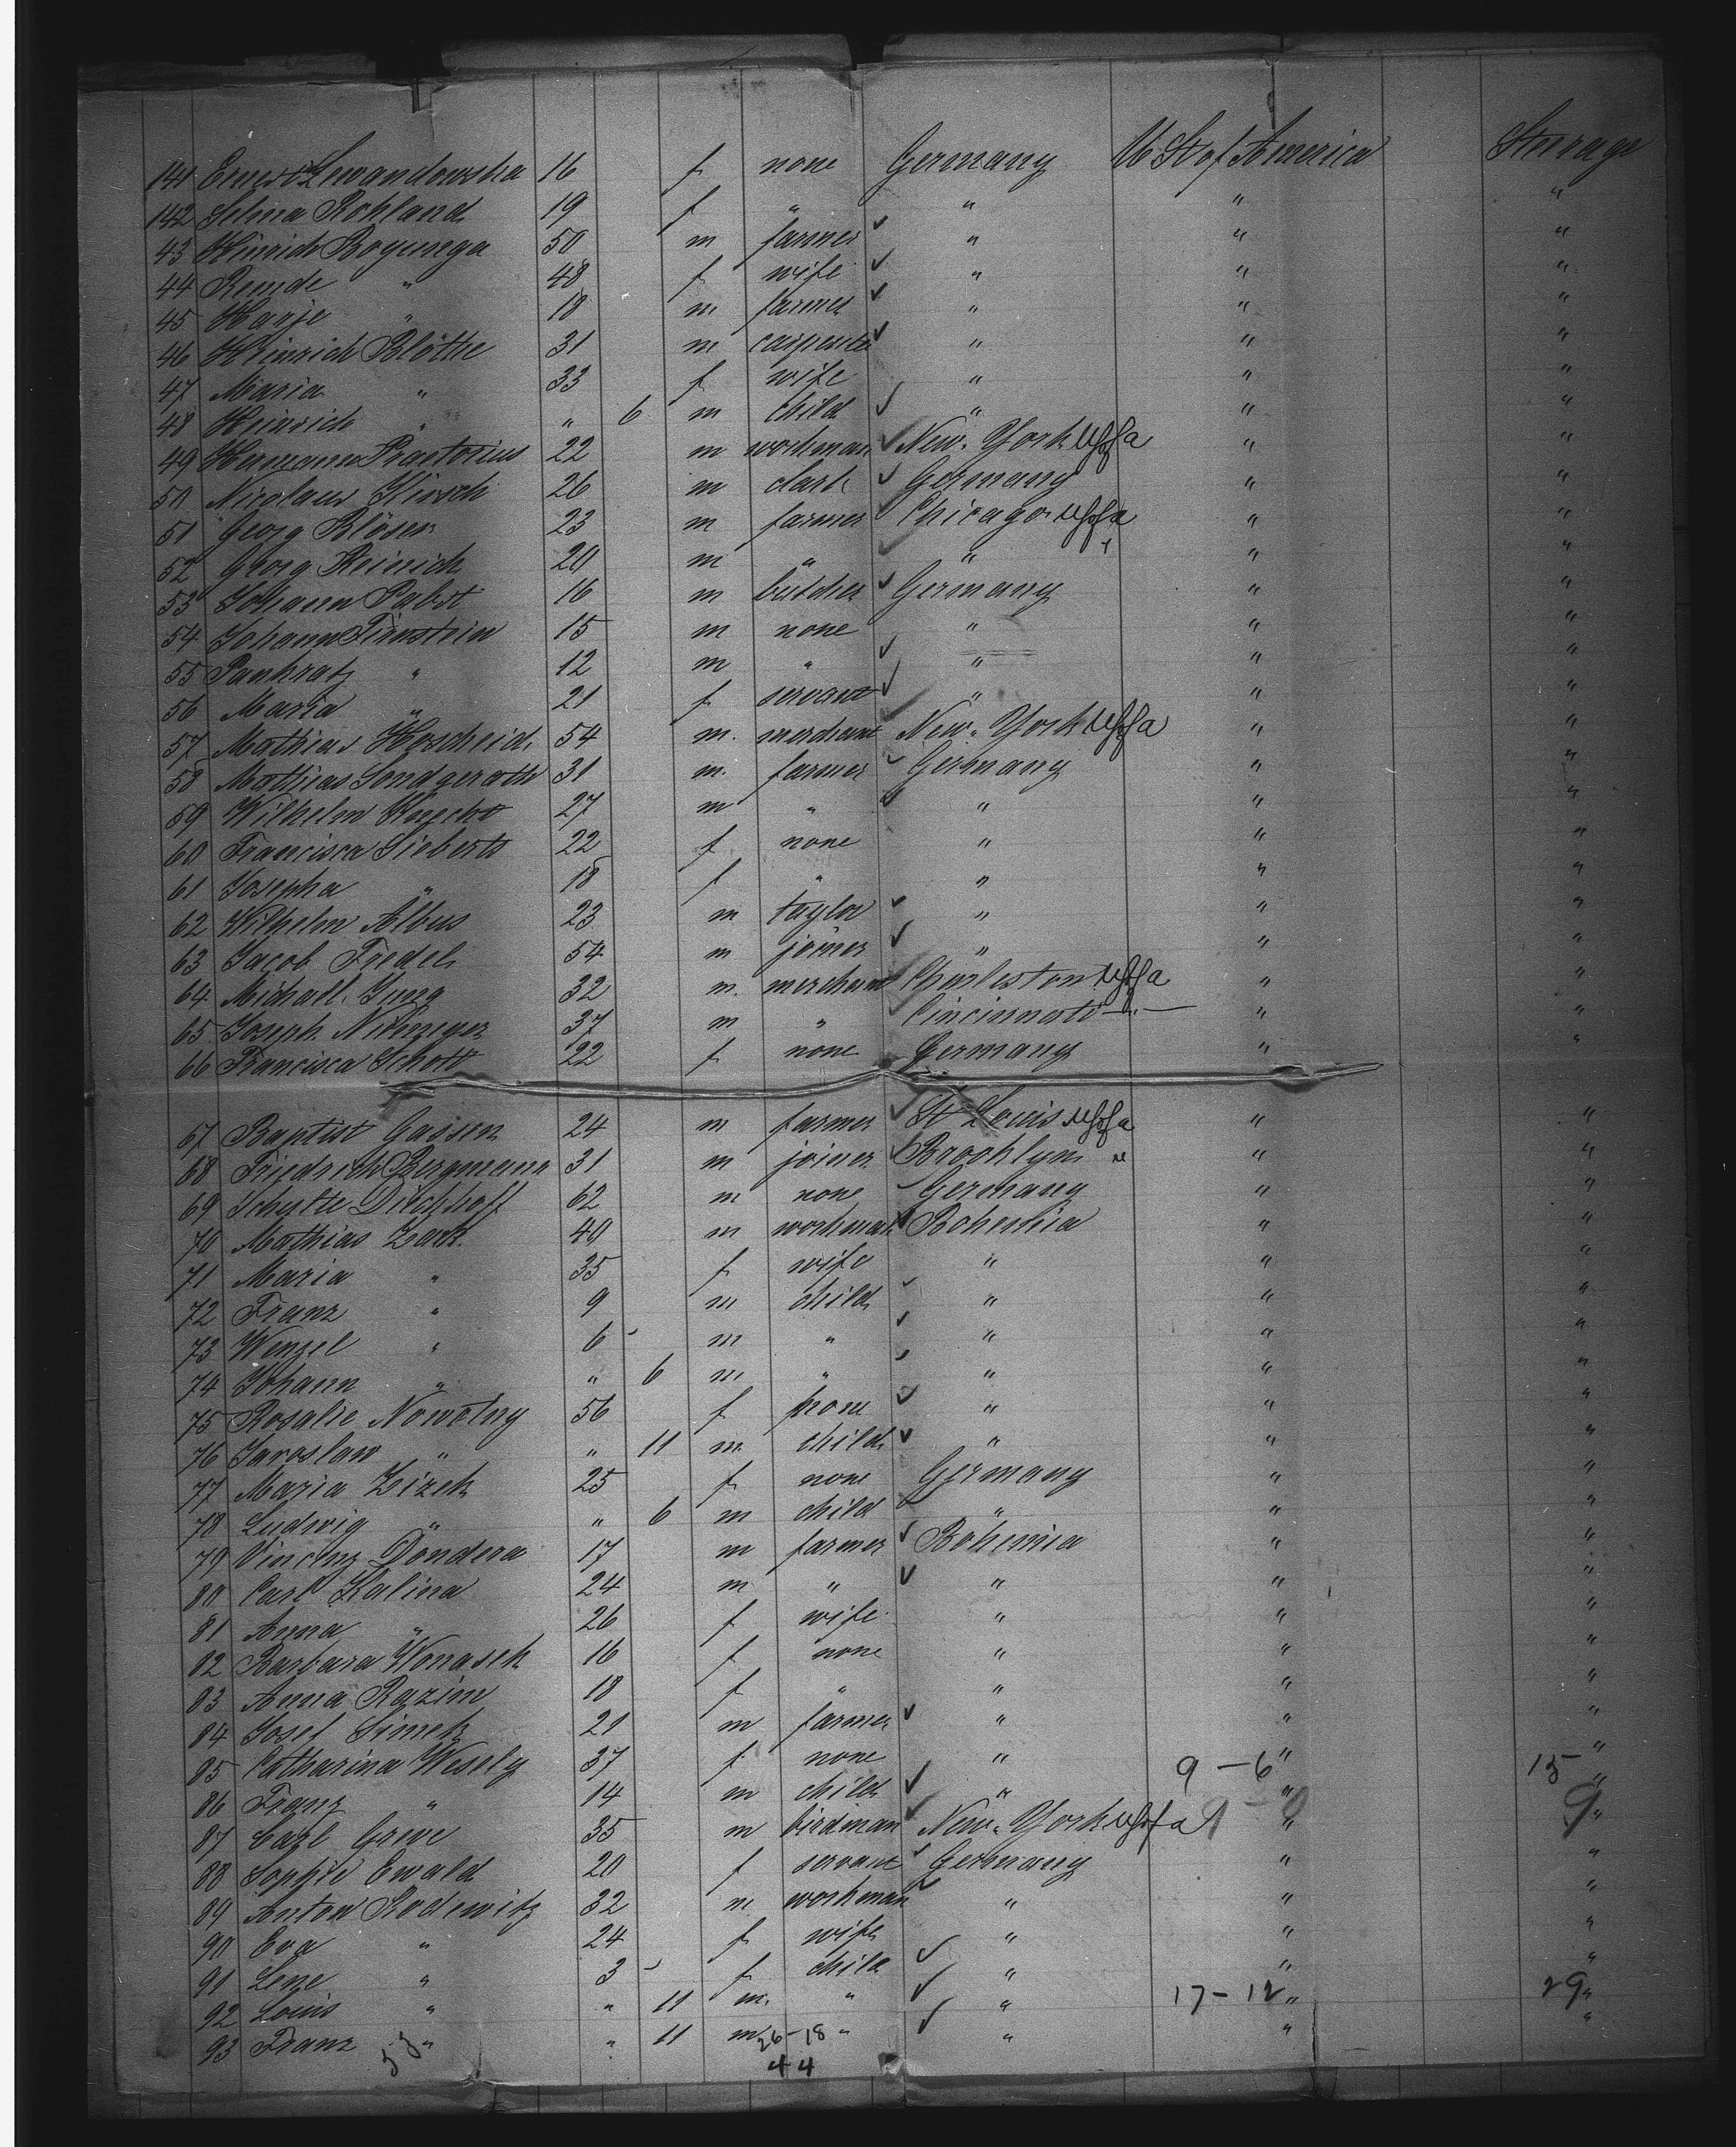 141 Ernest Lewandowska 16 f none Germany U St of America Steerage
142 Selma Rohland 19 f " " " "
43 Hinrich Boyunga 50 m farmer " " "
44 Remde " 48 f wife " " "
45 Harje " 18 m farmer " " "
46 Heinrich Blöthe 31 m carpenter " " "
47 Maria " 33 f wife " " "
48 Heinrich " " 6 m child " " "
49 Hermann Praetorius 22 m workman New-York " "
50 Nicolaus Kirsch 26 m clark Germany " "
51 Georg Blöser 23 m farmer Chicago " "
52 Georg Heinrich 20 m " " " "
53 Johann Pabst 16 m butcher Germany " "
54 Johann Firnstein 15 m none " " "
55 Pankratz " 12 m " " " "
56 Maria " 21 f servant " " "
57 Mathias Hoscheid 54 m. merchant New-York " "
58 Mathias Sondgeroth 31 m. farmer Germany " "
59 Wilhelm Knecht 27 m " " " "
60 Francisca Sieberts 22 f none " " "
61 Josepha " 18 f " " " "
62 Wilhelm Albus 23 m taylor " " "
63 Jacob Friedel 54 m joiner " " "
64 Michall Jung 32 m. merchant Charleston " "
65 Joseph 37 m " Cincinnati " " "
66 Francisca Schott 22 f none Germany " "
67 Baptist Gassen 24 m farmer St Louis " "
68 Friedrich Bergmann 31 m joiner Brooklyn " " "
69 Schulte Dieckhoff 62 m none Germany " "
70 Mathias Zark 40 m workman Bohemia " "
71 Maria " 35 f wife " " "
72 Franz " 9 m child " " "
73 Wenzel " 6 m " " " "
74 Johann " " 6 m " " " "
75 Rosalie Nowotny 56 f none " " "
76 Jaroslaw " " 11 m child " " "
77 Maria Zizek 25 f none Germany " "
78 Ludwig " " 6 m child " " "
79 Vincenz Dondera 17 m farmer Bohemia " "
80 Carl Kalina 24 m " " " "
81 Anna " 26 f wife " " "
82 Barbara Wonasek 16 f none " " "
83 Anna Razim 18 f " " " "
84 Josef Simek 21 m farmer " " "
85 Catharina Wesely 37 f none " 9 - 6 " 15 "
86 Franz " 14 m child " " "
87 Carl Greve 35 m birdman New-York " 9 "
88 Sophie Ewald 20 f servant Germany " "
89 Anton Rodewitz 32 m workman " " "
90 Eva " 24 f wife " " "
91 Lene " 3 f child " " "
92 Louis " " 11 m. " " 17 - 12 " 29 "
93 Franz " " 11 m " " " "
26-18
44